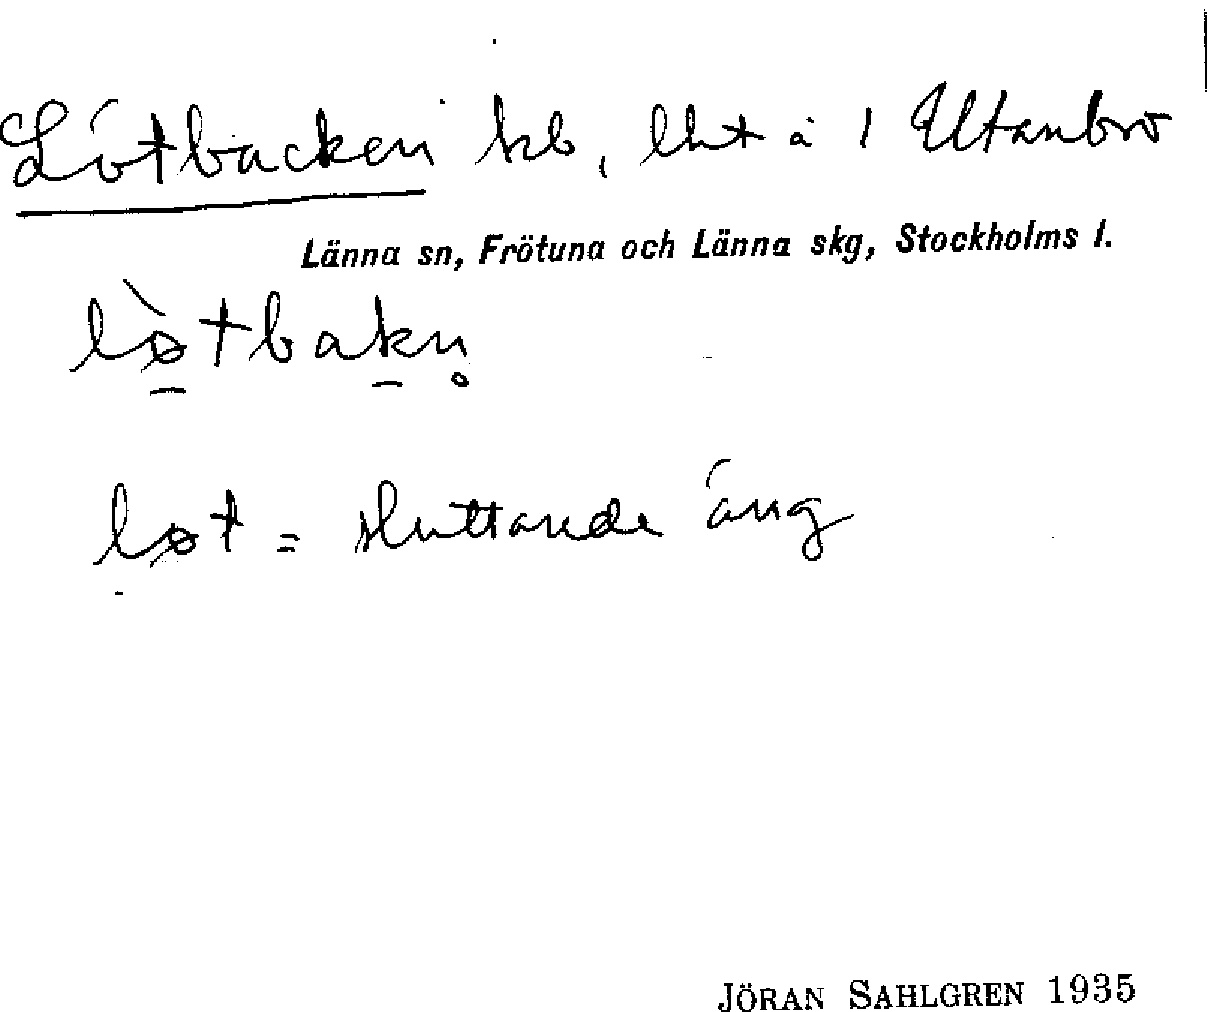 Lötbacken kb, lht å 1 Utanbro
Länna sn, Frötuna och Länna skg, Stockholms l.
lø̀tbakn̥
løt = sluttande äng
JÖRAN SAHLGREN 1935